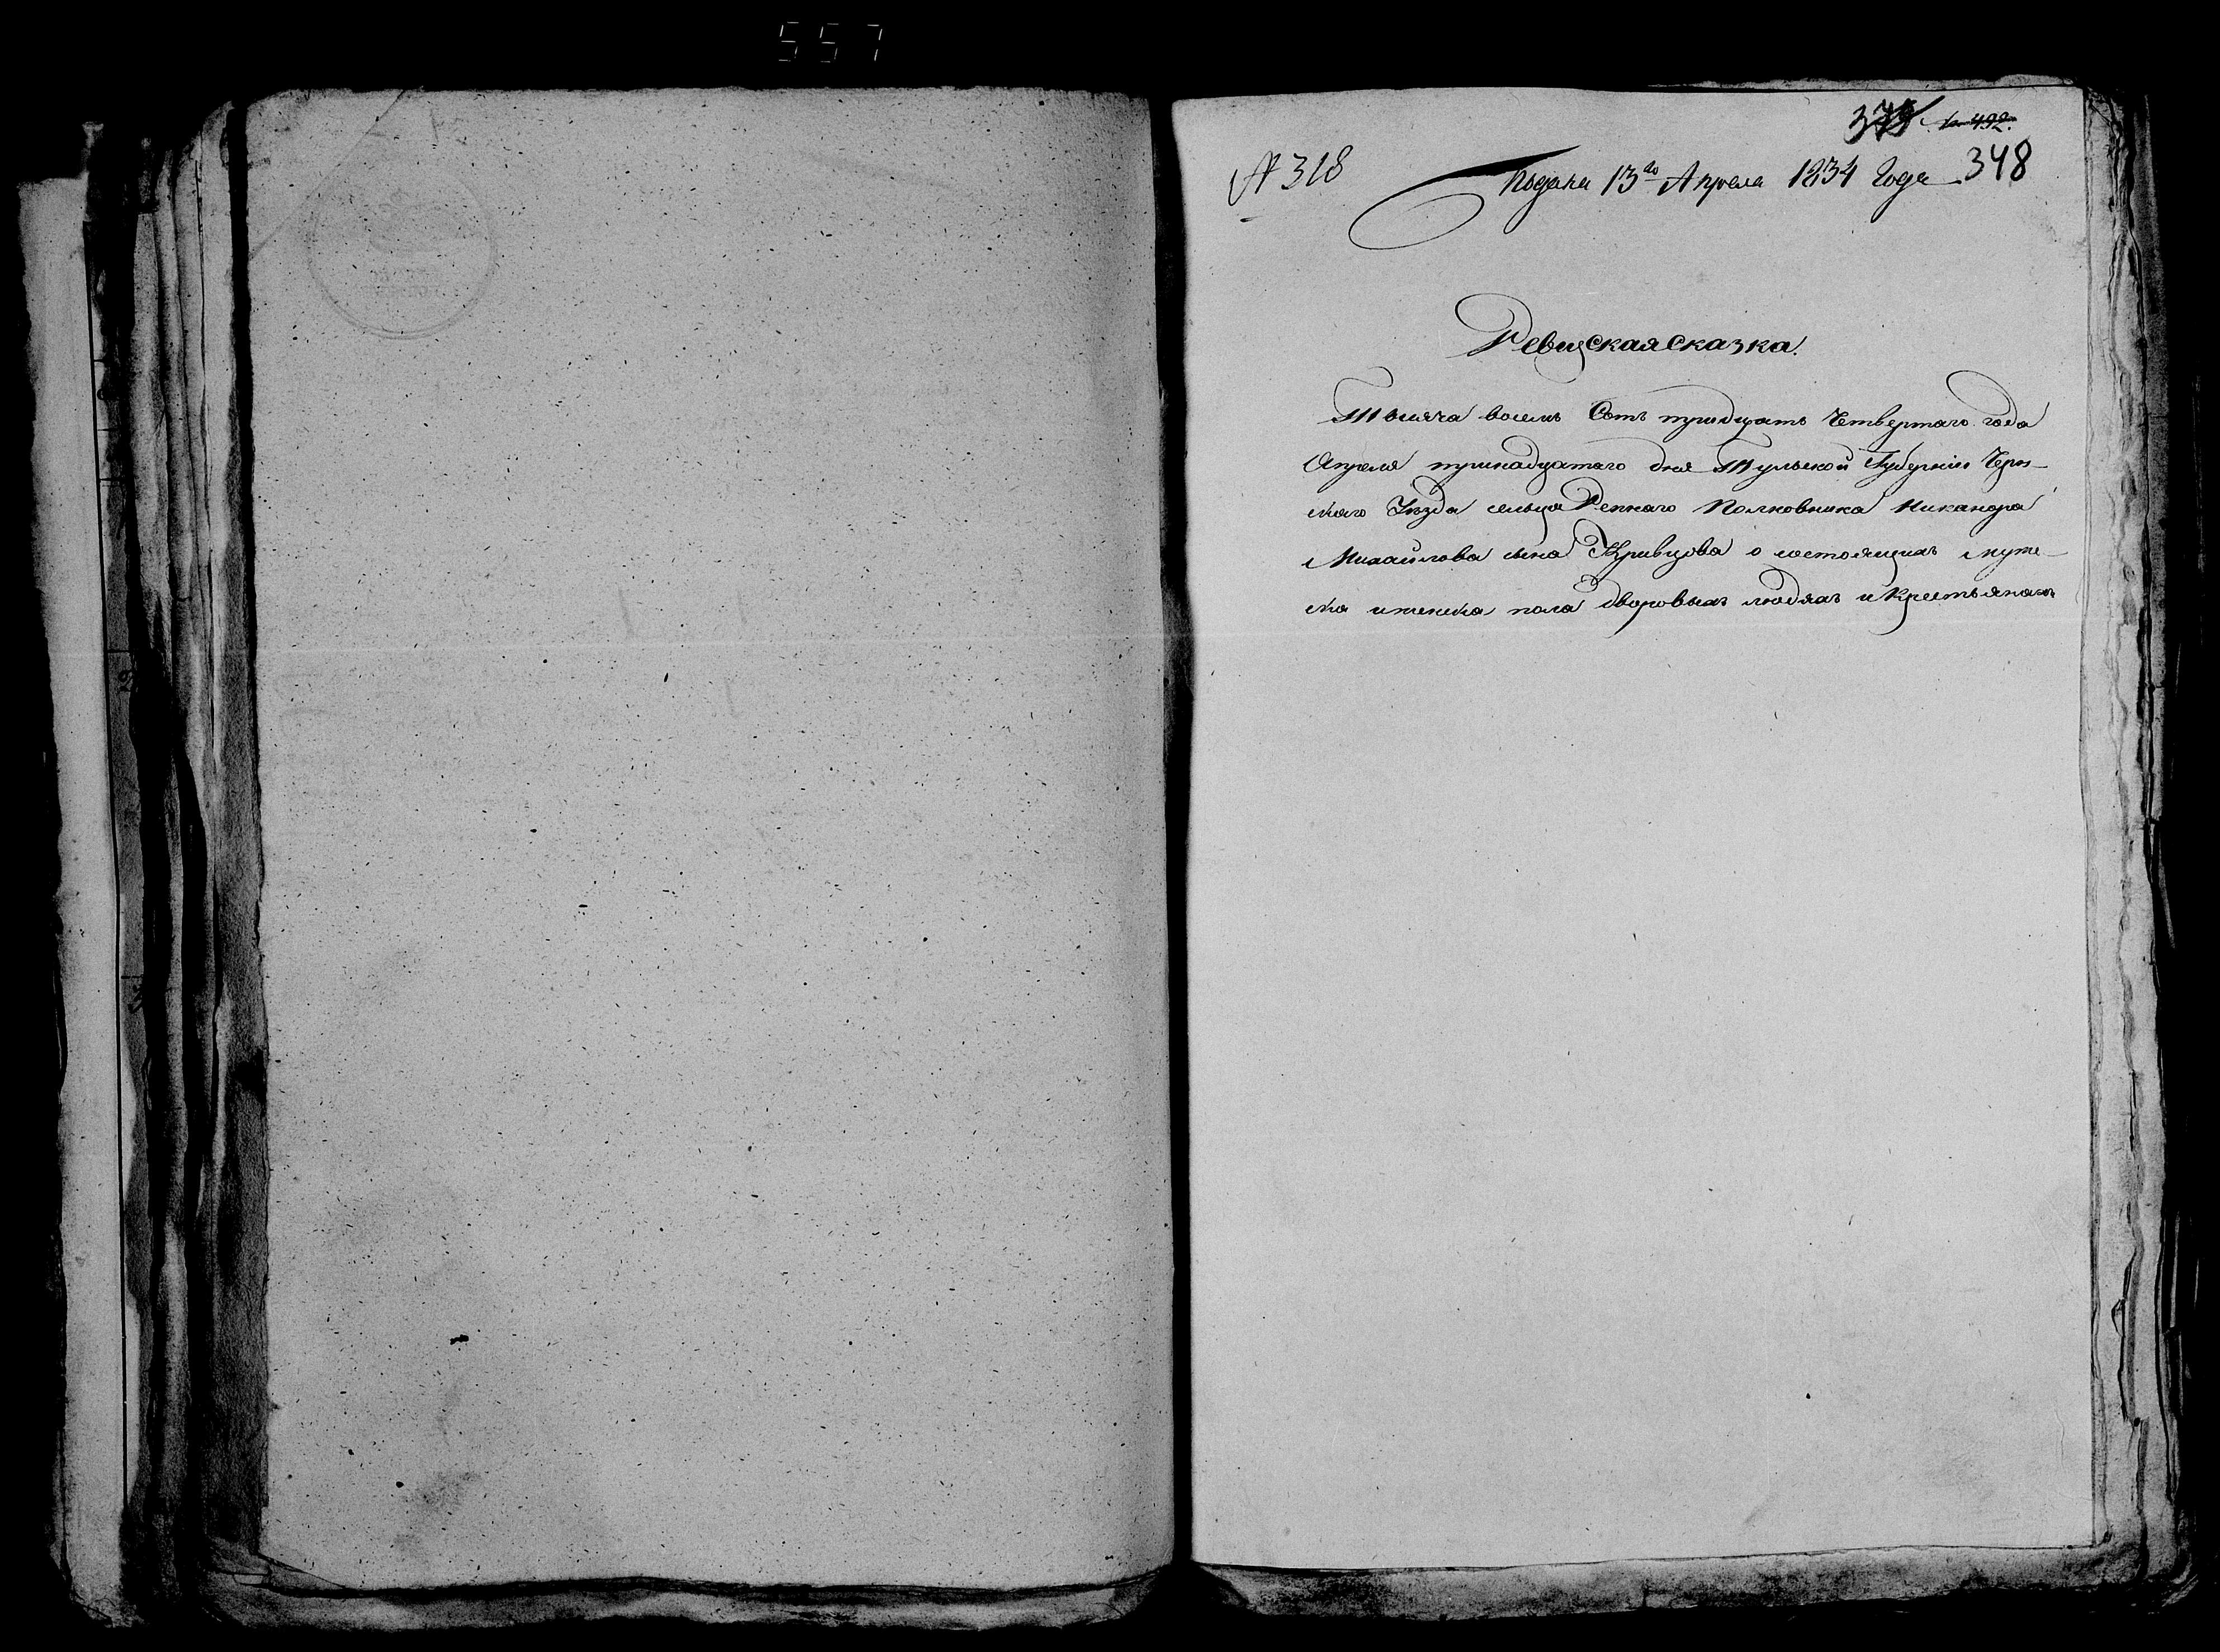 557
378 492.
№ 318 Подана 13го Апреля 1834 Года 348
Ревиская сказка.
Тысяча восемь Сотъ тридцать Четвертаго года
Апреля тринадцатаго дня Тульской Губерніи Черн-
скаго Уѣзда сельца Репнаго Полковника Никанора
Михайлова сына Кривцова о состоящихъ муже-
ска и женска пола дворовыхъ людяхъ и крестьянахъ